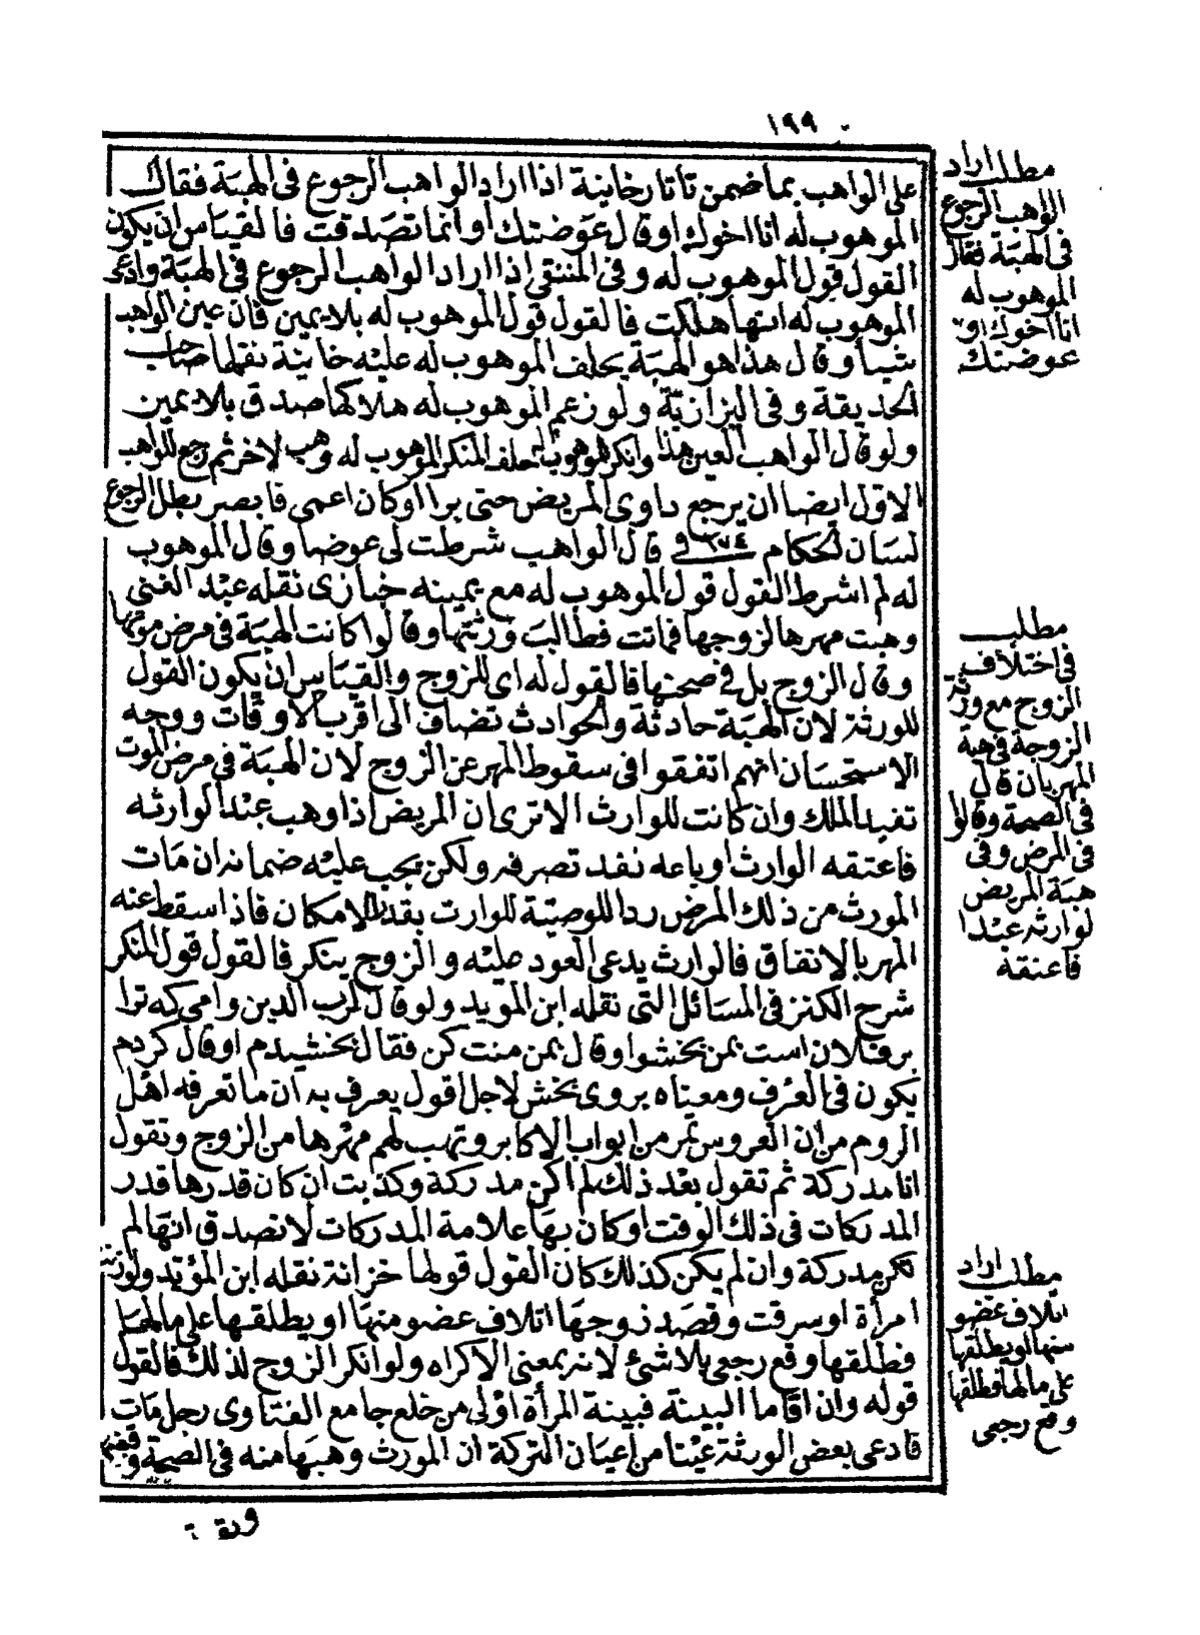 ١٩٩
على الواهب بما ضمن تاتارخانية اذا اراد الواهب الرجوع فى الهبة فقال
الموهوب له انا اخوك او قال عوضتك او انما تصدقت فالقياس ان يكون
القول قول الموهوب له وفى المنتقى اذا اراد الواهب الرجوع فى الهبة وادعى
الموهوب له انها هلكت فالقول قول الموهوب له بلا يمين فان عين الواهب
شيأ وقال هذا هو الهبة يحلف الموهوب له عليه خانية نقلها صاحب
الحديقة وفى البزازية ولو زعم الموهوب له هلاكها صدق بلا يمين
ولو قال الواهب العين هذا وانكر الموهوب له حلف المنكر الموهوب له وهب لاخر ثم رجع للواهب
الاول ايضا ان يرجع داوى المريض حتى برا او كان اعمى فابصر بطل الرجوع
لسان الحكام فى قال الواهب شرطت لى عوضا وقال الموهوب
له لم اشرط القول قول الموهوب له مع يمينه خبازى نقله عبد الغنى
وهبت مهرها لزوجها فماتت فطالب ورثتها وقالوا كانت الهبة فى مرض موتها
وقال الزوج بل فى صحتها فالقول له اى للزوج والقياس ان يكون القول
للورثة لان الهبة حادثة والحوادث تضاف الى اقرب الاوقات ووجه
الاستحسان انهم اتفقوا فى سقوط المهر عن الزوج لان الهبة فى مرض الموت
تفيد الملك وان كانت للوارث الا ترى ان المريض اذا وهب عبدا لوارثه
فاعتقه الوارث او باعه نفد تصرفه ولكن يجب عليه ضمانه ان مات
المورث من ذلك المرض ردا للوصية للوارث بقدر الامكان فاذا سقط عنه
المهر بالاتفاق فالوارث يدعى العود عليه والزوج ينكر فالقول قول المنكر
شرح الكنز فى المسائل التى نقله ابن المويد ولو قال لرب الدين وامى كه ترا
بر فلان است بمن بخشوا وقال بمن منت كن فقال بخشيدم او قال كردم
يكون فى العرف ومعناه بروى بخش لاجل اقول يعرف به ان ما تعرفه اهل
الروم من ان العروس تمر من ابواب الاكابر وتهب لهم مهرها من الزوج وتقول
انا مدركة ثم تقول بعد ذلك لم اكن مدركة وكذبت ان كان قدرها قدر
المدركات فى ذلك الوقت او كان بها علامة المدركات لا تصدق انها لم
تكن مدركة وان لم يكن كذلك كان القول قولها خزانة نقله ابن المؤيد ولو زنت
امرأة او سرقت وقصد زوجها اتلاف عضو منها او يطلقها على مالها
فطلقها وقع رجعى بلا شئ لانه بمعنى الاكراه ولو انكر الزوج لذلك فالقول
قوله وان اقاما البينة فبينة المرأة اولى من خلع جامع الفتاوى رجل مات
فادعى بعض الورثة عينا من اعيان التركة ان المورث وهبها منه فى الصحة وقبضها
مطلب اراد
الواهب الرجوع
فى الهبة فقال
الموهوب له
انا اخوك او
عوضتك
مطلب
فى اختلاف
الزوج مع ورثة
الزوجة فى هبة
المهر بان قال
فى الصحة وقالوا
فى المرض وفى
هبة المريض
لوارثه عبدا
فاعتقه
مطلب اراد
اتلاف عضو
منها او يطلقها
على مالها فطلقها
وقع رجعى